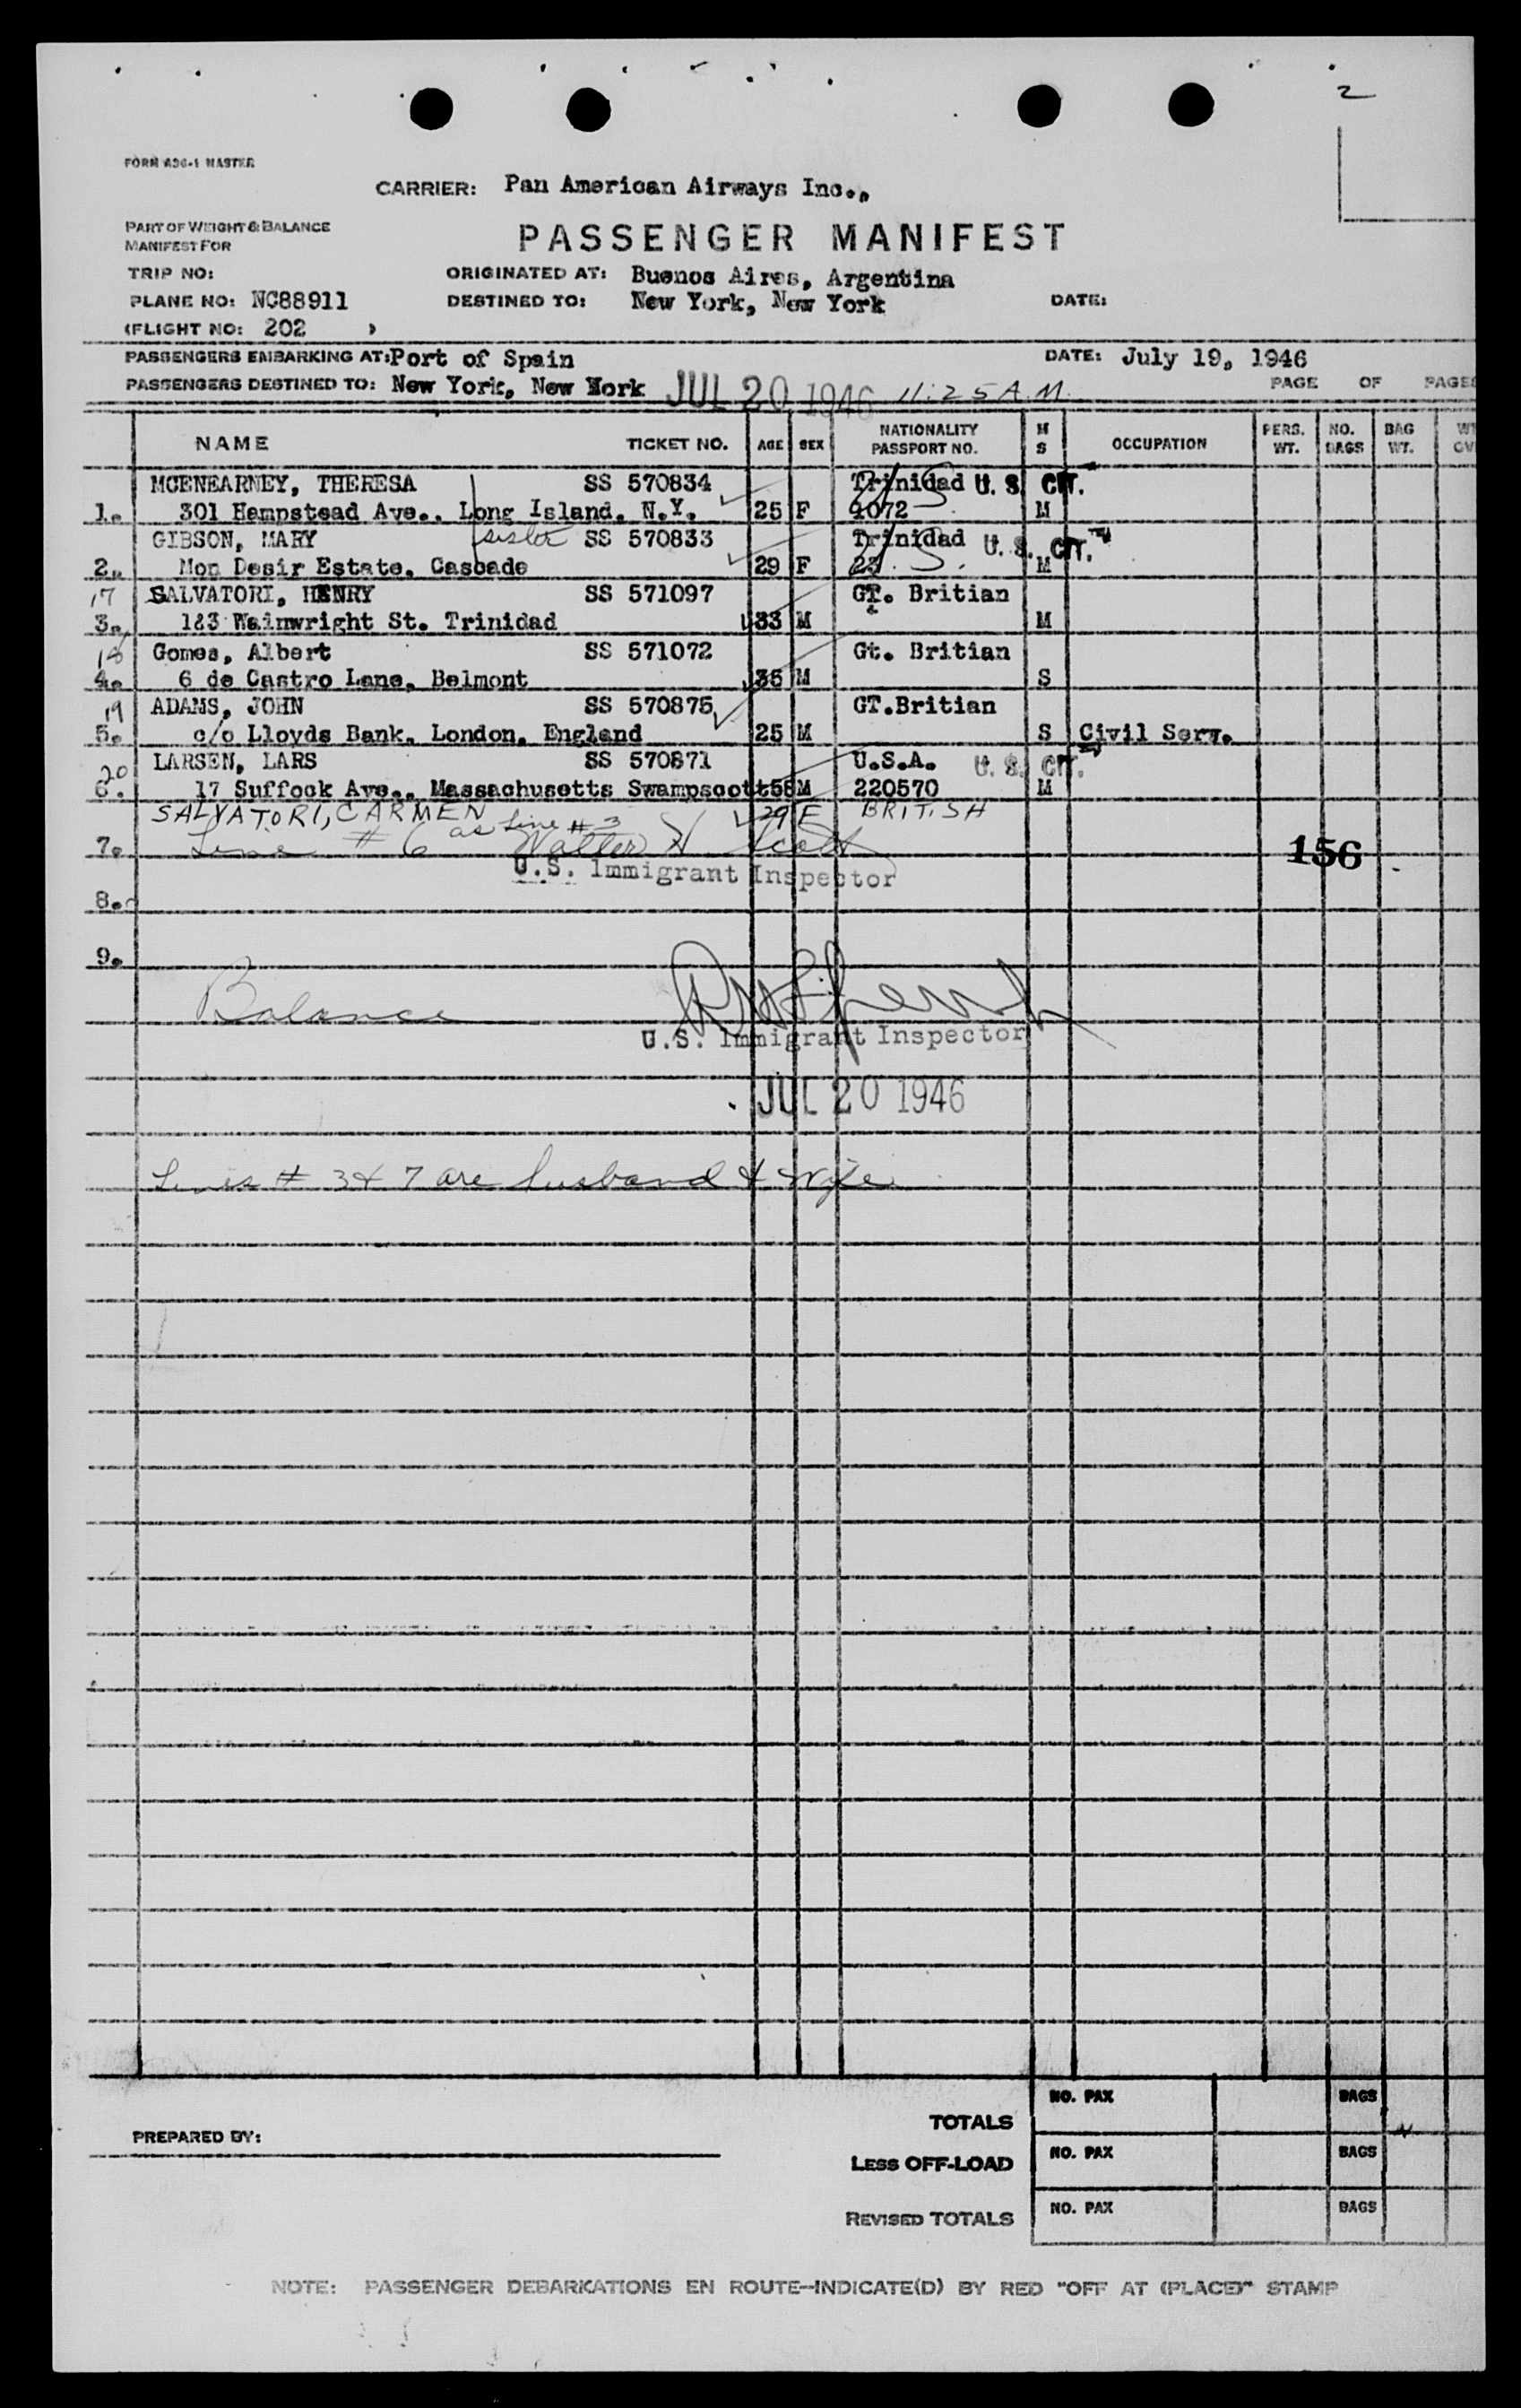 2
FORM A36-1 MASTER
CARRIER: Pan American Airways Inc.,
PART OF WEIGHT & BALANCE
MANIFEST FOR
PASSENGER MANIFEST
TRIP NO:
ORIGINATED AT: Buenos Aires, Argentina
PLANE NO: NC88911
DESTINED TO: New York, New York
DATE:
(FLIGHT NO: 202 )
PASSENGERS EMBARKING AT: Port of Spain DATE: July 19, 1946
PASSENGERS DESTINED TO: New York, New York JUL 20 1946 11:25 A.M. PAGE OF PAGES
NAME TICKET NO. AGE SEX NATIONALITY PASSPORT NO. M S OCCUPATION PERS. WT. NO. BAGS BAG WT.
MCENEARNEY, THERESA SS 570834 Trinidad U. S. CIT.
1. 301 Hempstead Ave., Long Island, N.Y. 25 F 4072 U.S. M
GIBSON, MARY sister SS 570833 Trinidad U. S. CIT.
2. Mon Desir Estate, Cascade 29 F 23 U.S. M
17 SALVATORI, HENRY SS 571097 GT. Britian
3. 123 Wainwright St. Trinidad 33 M M
18 Gomes, Albert SS 571072 Gt. Britian
4. 6 de Castro Lane, Belmont 35 M S
19 ADAMS, JOHN SS 570875 GT.Britian
5. c/o Lloyds Bank, London, England 25 M S Civil Serv.
20 LARSEN, LARS SS 570871 U.S.A. U. S. CIT.
6. 17 Suffock Ave., Massachusetts Swampscott 58 M 220570 M
SALVATORI, CARMEN as line #3 29 F BRITISH
7. Line # 6 Walter H Scott 156
U.S. Immigrant Inspector
8.
9.
Balance
U.S. Immigrant Inspector
JUL 20 1946
Lines # 3 & 7 are husband & wife
TOTALS NO. PAX BAGS
PREPARED BY:
LESS OFF-LOAD NO. PAX BAGS
REVISED TOTALS NO. PAX BAGS
NOTE: PASSENGER DEBARKATIONS EN ROUTE--INDICATE(D) BY RED "OFF AT (PLACE)" STAMP